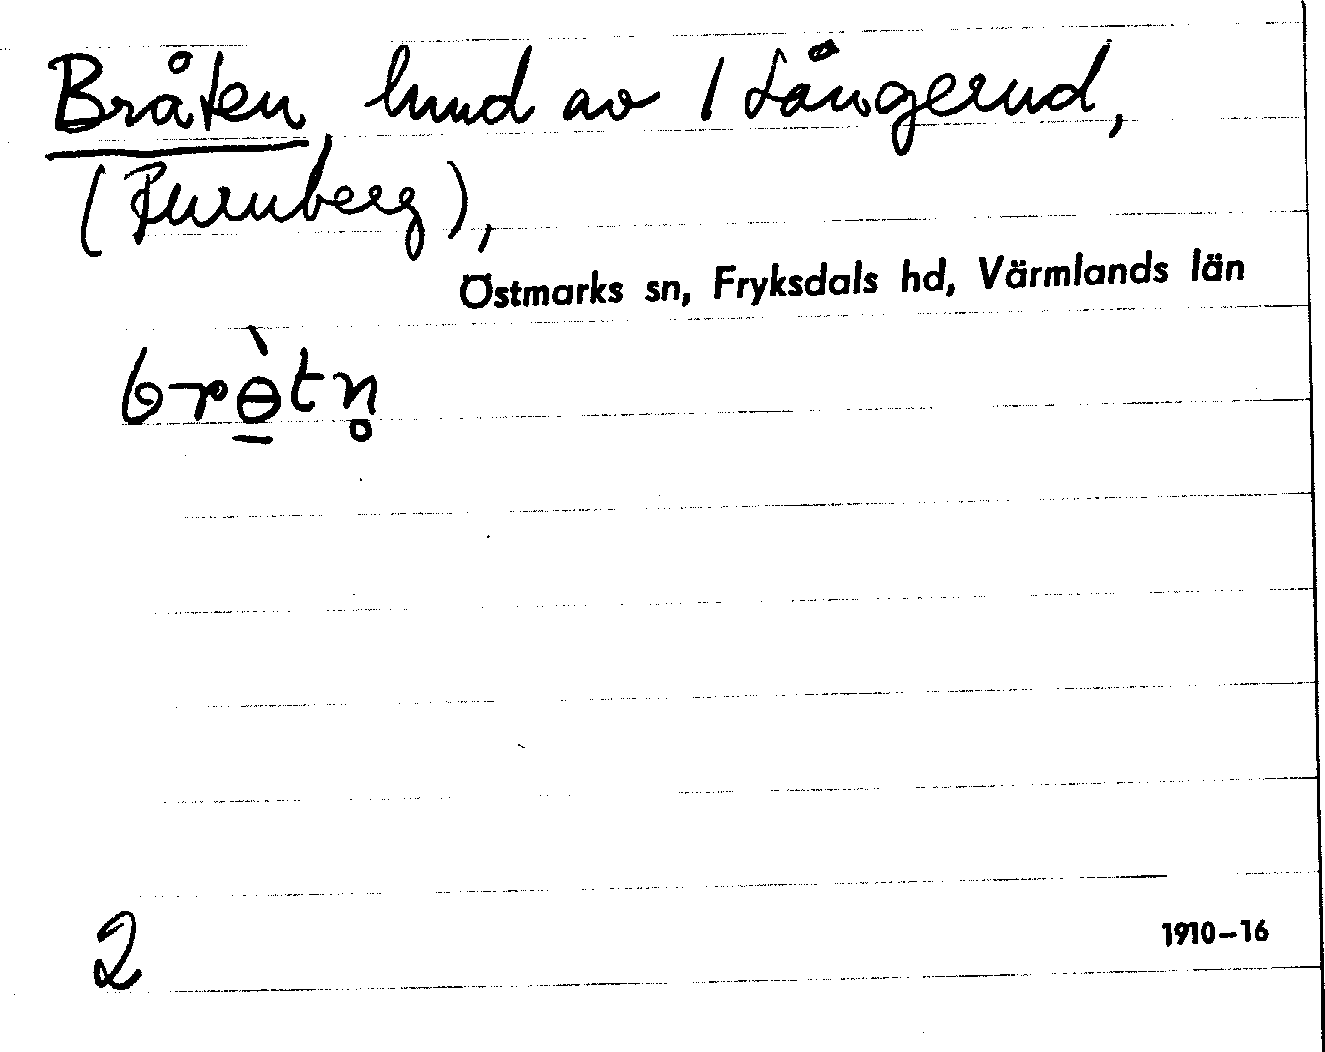 Bråten, hmd av 1 Långerud,
(Furuberg),
Östmarks sn, Fryksdals hd, Värmlands län
brɵ̠̀tn̥
2
1910–16